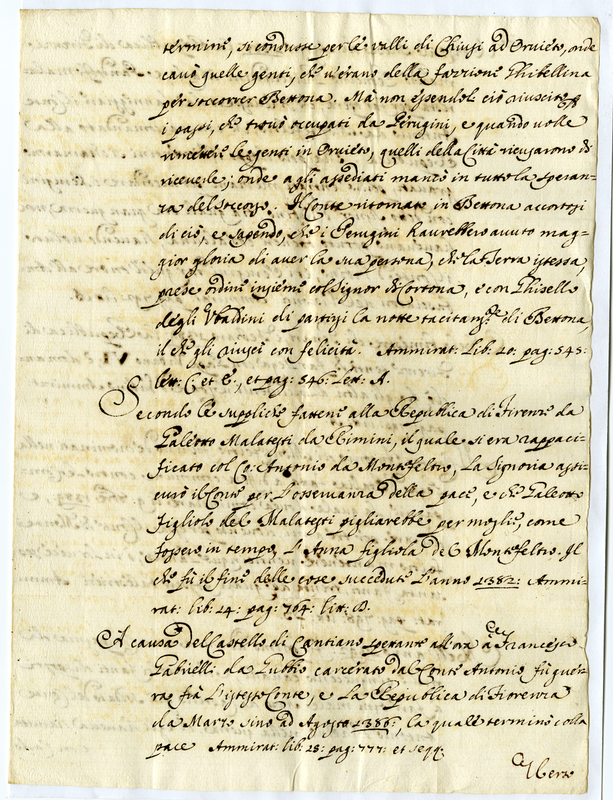 termine, si condusse per le valli di Chiusi ad Orvieto, onde
cavò quelle genti, che v'erano della fazzione Ghibellina
per soccorrer Bettona. Mà non essendoli ciò riuscito
i passi, che trovò occupati da Perugini, e quando volle
rimettere le genti in Orvieto, quelli della Città ricusarono di
riceverle; onde a gli assediati mancò in tutto la speran=
za del soccorso. Il Conte ritornato in Bettona accortosi
di ciò, e sapendo, che i Perugini havrebbero avuto mag=
gior gloria di aver la sua persona, che la Terra istessa,
prese ordine insieme col Signor di Cortona, e con Ghisello
degli Ubaldini di partirsi la notte tacitam.te di Bettona,
il che gli riuscì con felicità. Ammirat: Lib: 10: pag: 545:
lett: C. et E., et pag: 546: Lett: A.
Secondo le supliche fattene alla Republica di Firenze da
Galeotto Malatesti da Rimini, il quale si era rappaci=
ficato col Co: Antonio da Montefeltro, La Signoria assi=
curò il Conte per l'osservanza della pace, e che Galeotto
figliolo del Malatesti pigliarebbe per moglie, come
fossero in tempo, l'Anna figliola del Montefeltro. Il
che fù il fine delle cose succedute l'anno 1382: Ammi=
rat: lib: 14: pag: 764: litt: D.
A causa del Castello di Cantiano spettante allora à Francesco
Gabrielli da Gubbio carcerato dal Conte Antonio fù guer=
ra frà l'istesso Conte, e La Republica di Fiorenza
da Marzo sino ad Agosto 1386:, la quale terminò colla
pace Ammirat: lib: 15: pag: 777: et seqq:
Alberto